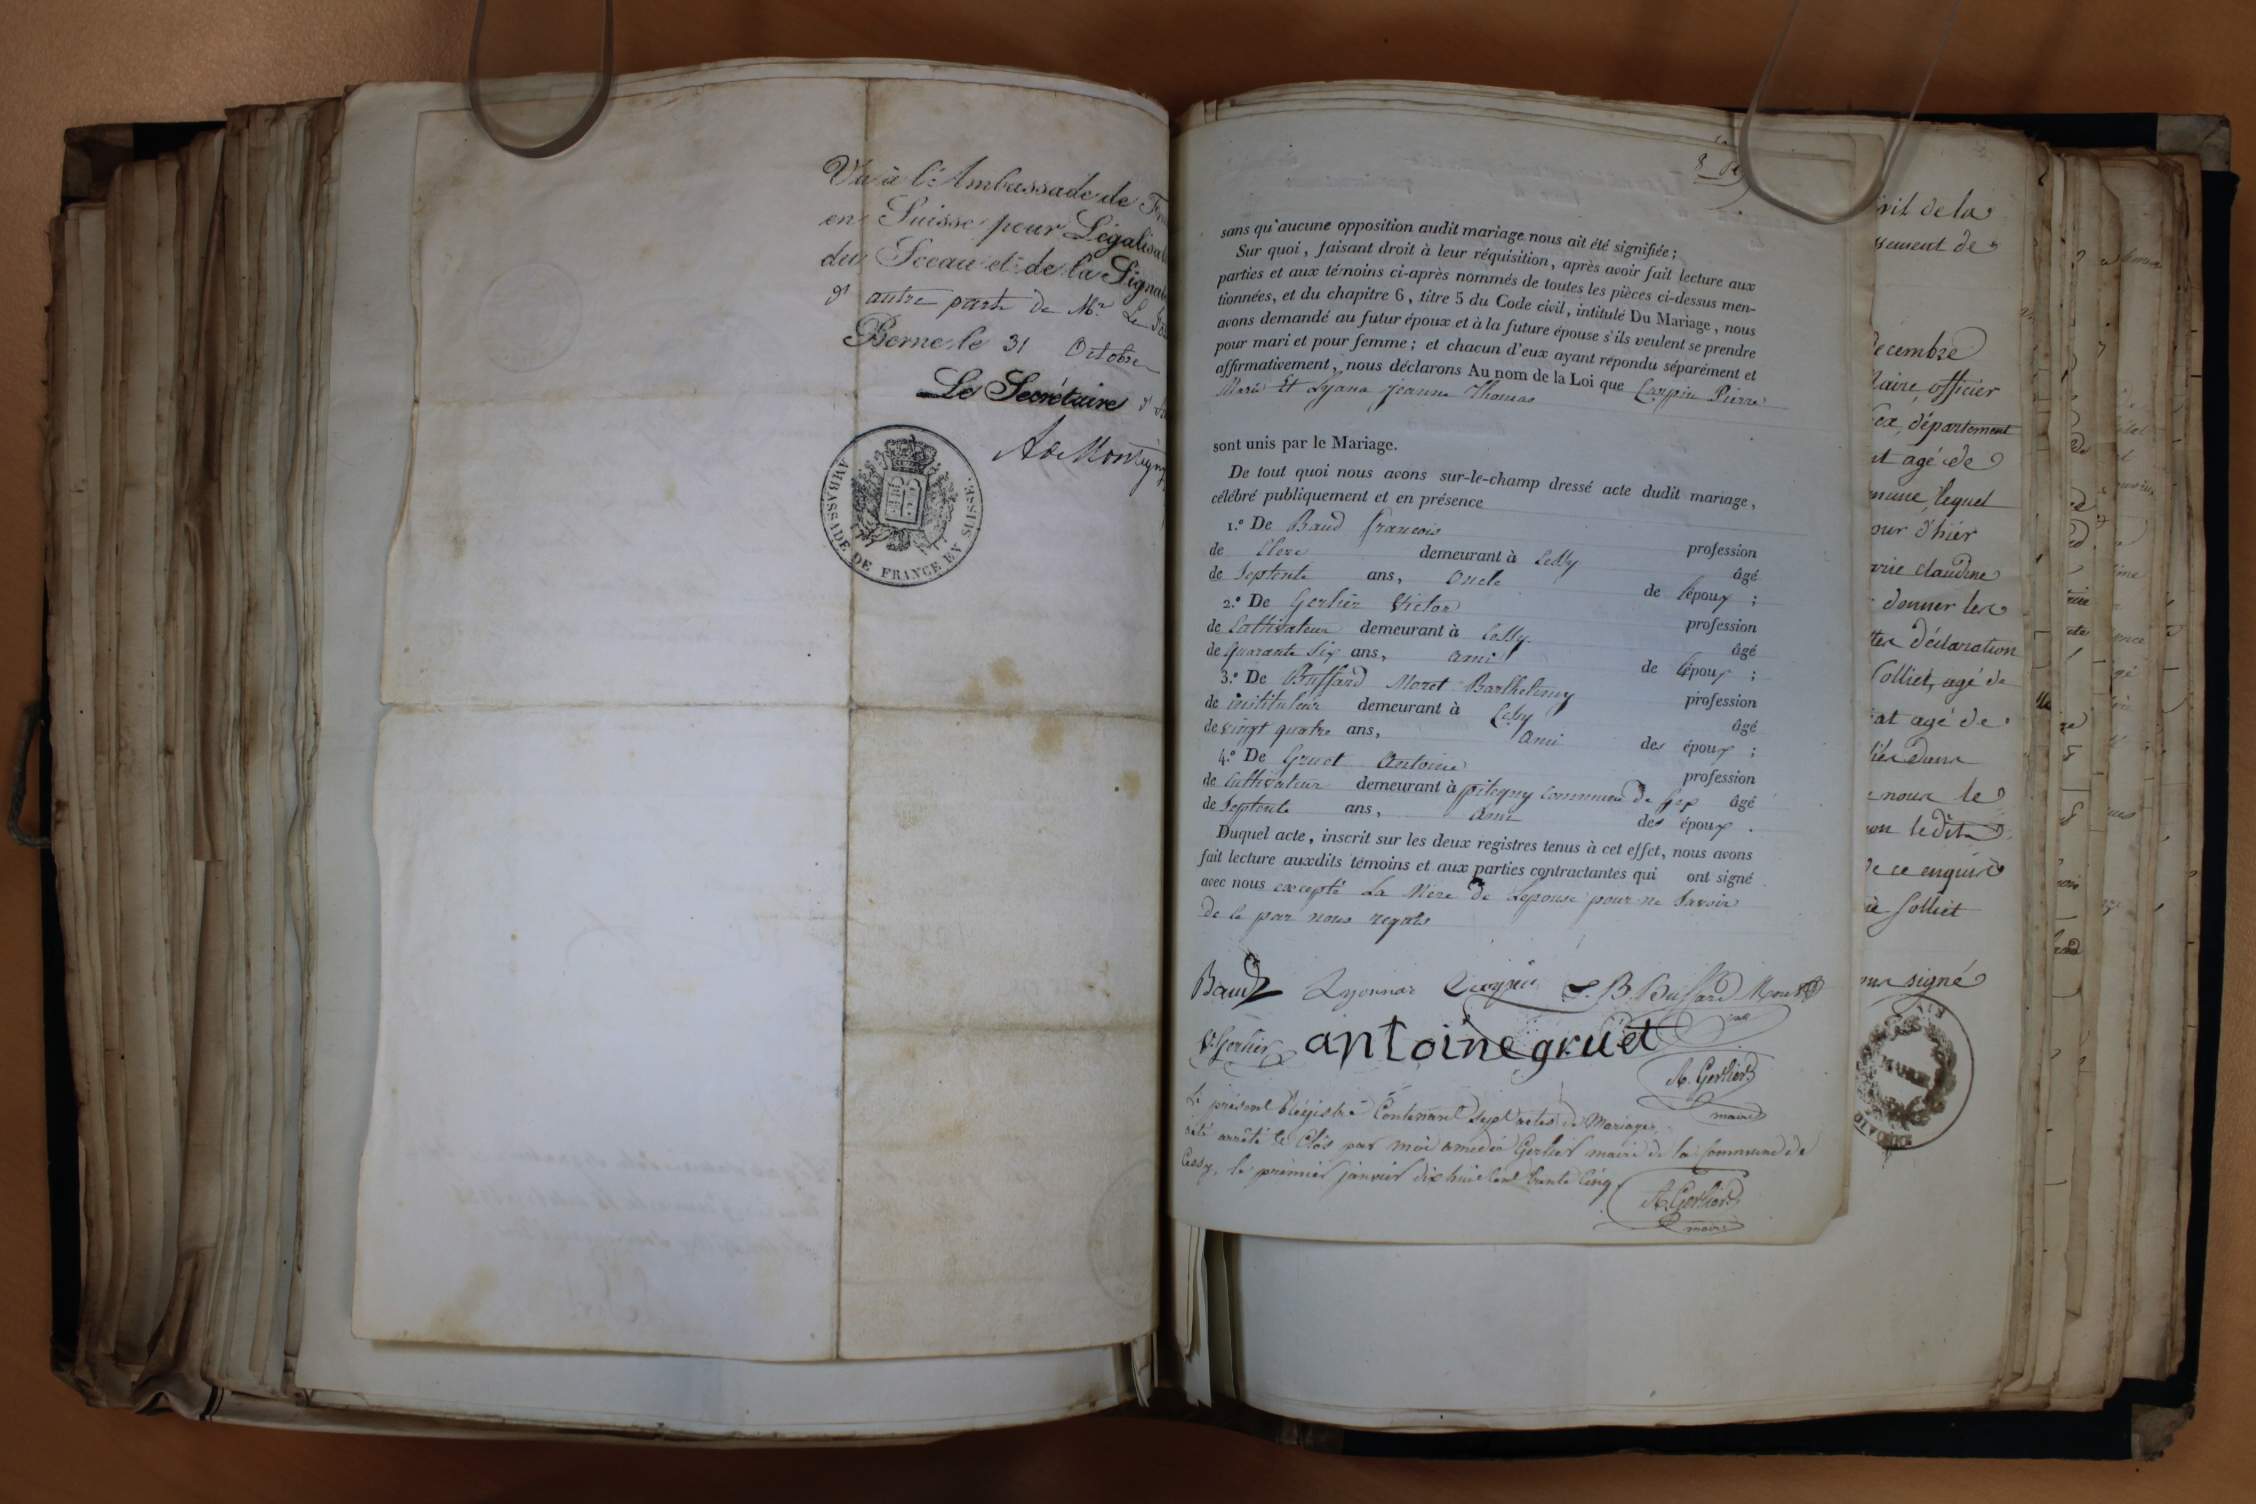 Vu à l'Ambassade de
en Suisse pour Légalisa
du Sceau et de la Signat
d'autre part de Mr. Le
Berne le 31 Octobre
Le Secrétaire d'
A de Montigny
AMBASSADE DE FRANCE EN SUISSE.
sans qu'aucune opposition audit mariage nous ait été signifiée ;
Sur quoi, faisant droit à leur réquisition, après avoir fait lecture aux
parties et aux témoins ci-après nommés de toutes les pièces ci-dessus men-
tionnées, et du chapitre 6, titre 5 du Code civil, intitulé Du Mariage, nous
avons demandé au futur époux et à la future épouse s'ils veulent se prendre
pour mari et pour femme ; et chacun d'eux ayant répondu séparément et
affirmativement, nous déclarons Au nom de la Loi que Carpin Pierre
Marie Et Lyana jeanne Thomas
sont unis par le Mariage.
De tout quoi nous avons sur-le-champ dressé acte dudit mariage,
célébré publiquement et en présence
1.º De Baud francois profession
de Clerc demeurant à Cessy âgé
de Septente ans, oncle de lépoux ;
2.º De Gerlier Victor profession
de Cultivateur demeurant à Cessy âgé
de quarante Six ans, ami de lépoux ;
3.º De Buffard Moret Barthelemy profession
de instituteur demeurant à Cessy âgé
de vingt quatre ans, ami des époux ;
4.º De Gruet Antoine profession
de Cultivateur demeurant à pitegny commune de Gex âgé
de Septente ans, ami des époux .
Duquel acte, inscrit sur les deux registres tenus à cet effet, nous avons
fait lecture auxdits témoins et aux parties contractantes qui ont signé
avec nous excepté La Mere de Lepouse pour ne Savoir
de le par nous requis
Baud Lyonnaz Carpin J. B. Buffard Moret
V. Gerlier antoine gruet
A. Gerlier
maire
Le présent Régistre Contenant Sept actes de Mariages
a été arrêté & Clos par moi amedée Gerlier maire de la Commune de
Cessy, le premier janvier dix huit cent trente Cinq
A. Gerlier
maire
ivil de la
ssement de
Décembre
Maire, officier
Gex, département
at agé de
mune, lequel
our d'hier
arie claudine
donner les
tte déclaration
Colliet, agé de
at agé de
nous le
on ledit
de ce enquis
Colliet
ons signé
MAIRIE